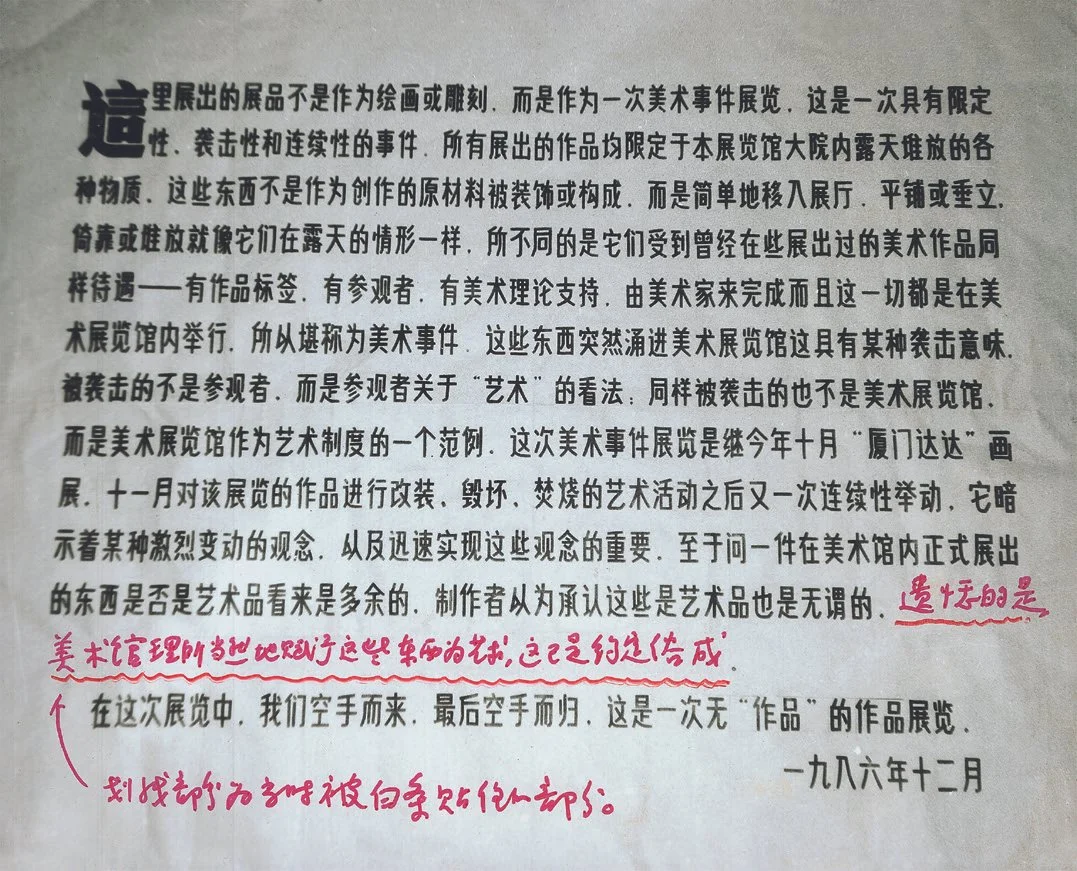 這里展出的展品不是作为绘画或雕刻．而是作为一次美术事件展览．这是一次具有限定
性．袭击性和连续性的事件．所有展出的作品均限定于本展览馆大院内露天堆放的各
种物质．这些东西不是作为创作的原材料被装饰或构成．而是简单地移入展厅．平铺或垂立．
倚靠或堆放就像它们在露天的情形一样．所不同的是它们受到曾经在些展出过的美术作品同
样待遇——有作品标签．有参观者．有美术理论支持．由美术家来完成而且这一切都是在美
术展览馆内举行．所以堪称为美术事件．这些东西突然涌进美术展览馆这具有某种袭击意味．
被袭击的不是参观者．而是参观者关于“艺术”的看法；同样被袭击的也不是美术展览馆．
而是美术展览馆作为艺术制度的一个范例．这次美术事件展览是继今年十月“厦门达达”画
展．十一月对该展览的作品进行改装、毁坏、焚烧的艺术活动之后又一次连续性举动．它暗
示着某种激烈变动的观念．以及迅速实现这些观念的重要．至于问一件在美术馆内正式展出
的东西是否是艺术品看来是多余的．制作者以为承认这些是艺术品也是无谓的．遗憾的是
美术馆理所当然地赋予这些东西为艺术，这已是约定俗成．
在这次展览中．我们空手而来．最后空手而归．这是一次无“作品”的作品展览．
一九八六年十二月
划线部分为当时被白条贴住的部分。